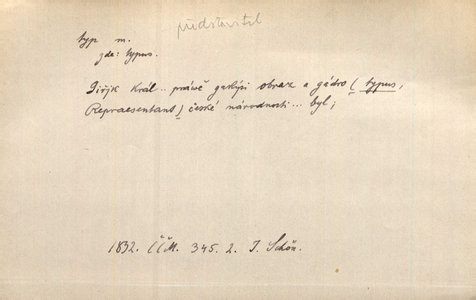 představitel
typ m.
zde: typus.
Jiřjk Král .. práwě gakýsi obraz a gádro (typus,
Repraesentant) české národnosti ... byl;
1832. ČČM. 345. 2. J. Schön.